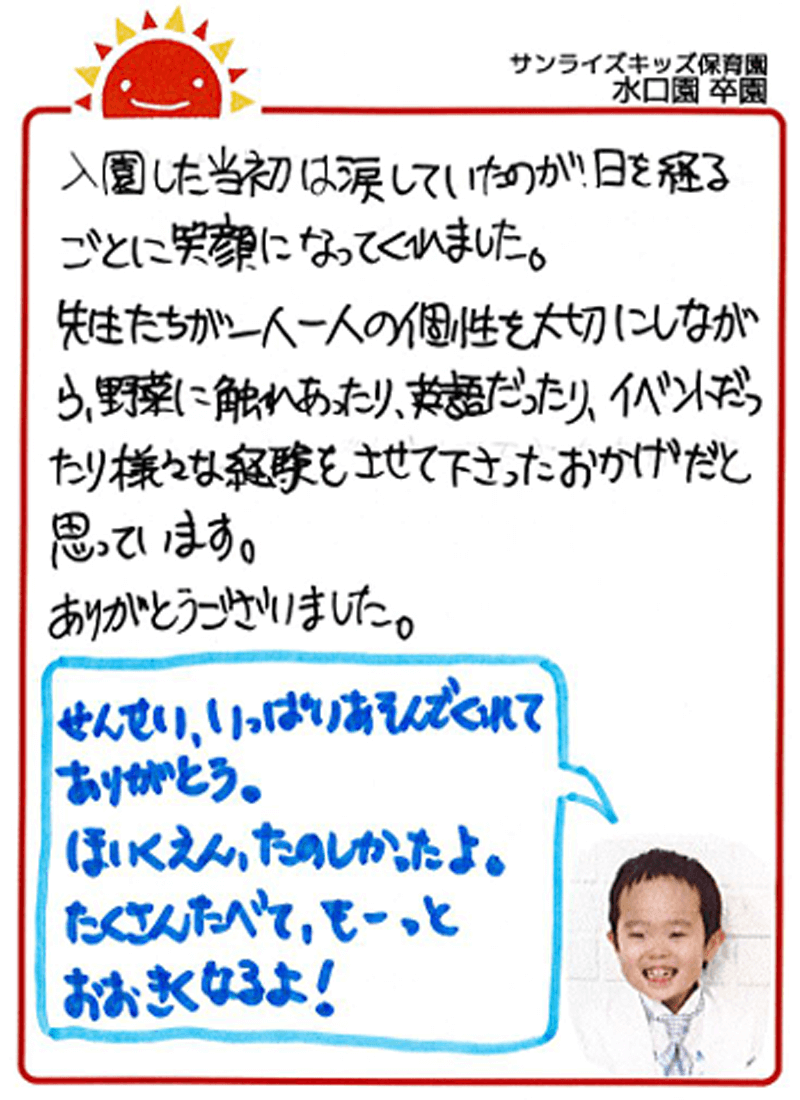 サンライズキッズ保育園
水口園 卒園
入園した当初は涙していたのが、日を経る
ごとに笑顔になってくれました。
先生たちが一人一人の個性を大切にしなが
ら、野菜に触れあったり、英語だったり、イベントだっ
たり様々な経験をさせて下さったおかげだと
思っています。
ありがとうございました。
せんせい、いっぱいあそんでくれて
ありがとう。
ほいくえん、たのしかったよ。
たくさんたべて、もーっと
おおきくなるよ!